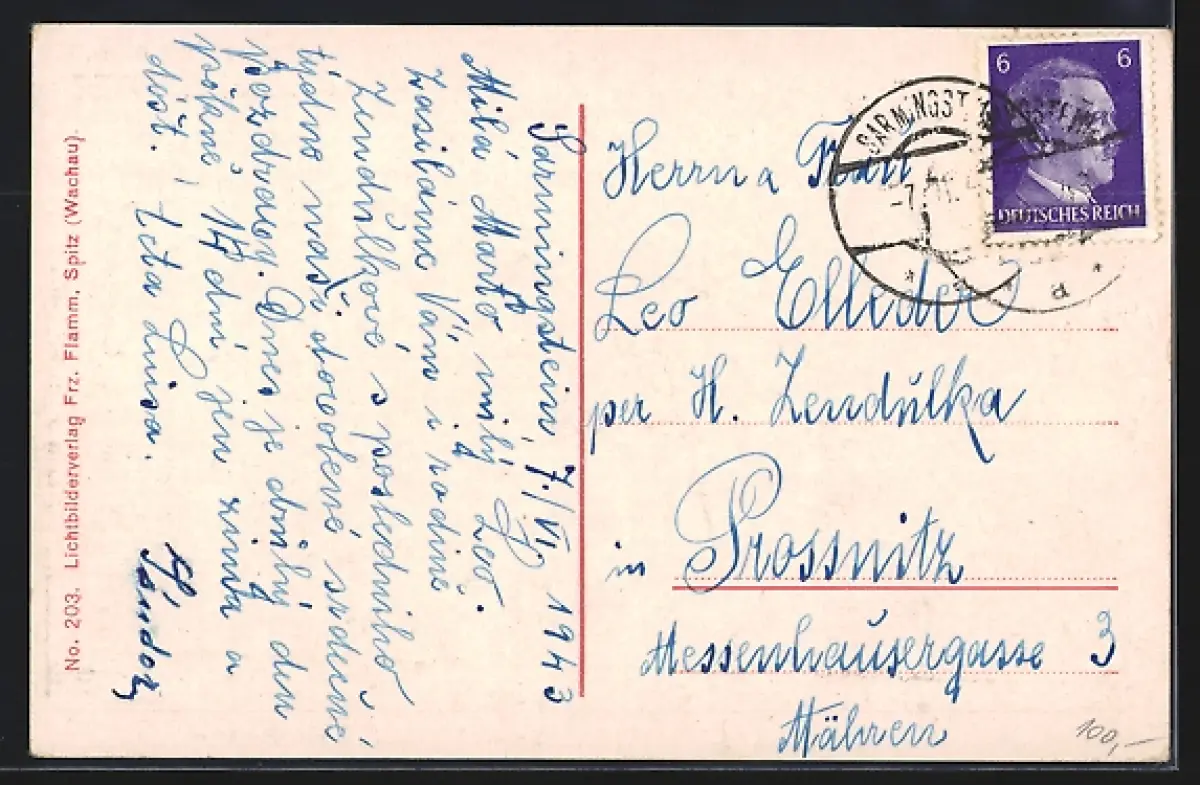 Sarmingstein, 7./VI. 1943
Milá Marto milý Leo.
Zasíláme Vám i rodině
Zendulkové s posledního
týdne naší dovolené srdečné
pozdravy. Dnes je druhý den
pěkně 14 dní jen zima a
déšť. teta Luisa.
Sándor
No. 203. Lichtbilderverlag Frz. Flamm, Spitz (Wachau).
6 6
DEUTSCHES REICH
SARMINGSTEIN
Herrn a Frau
Leo Elleder
per H. Zendulka
in Prossnitz
Messenhausergasse 3
Mähren
100,-